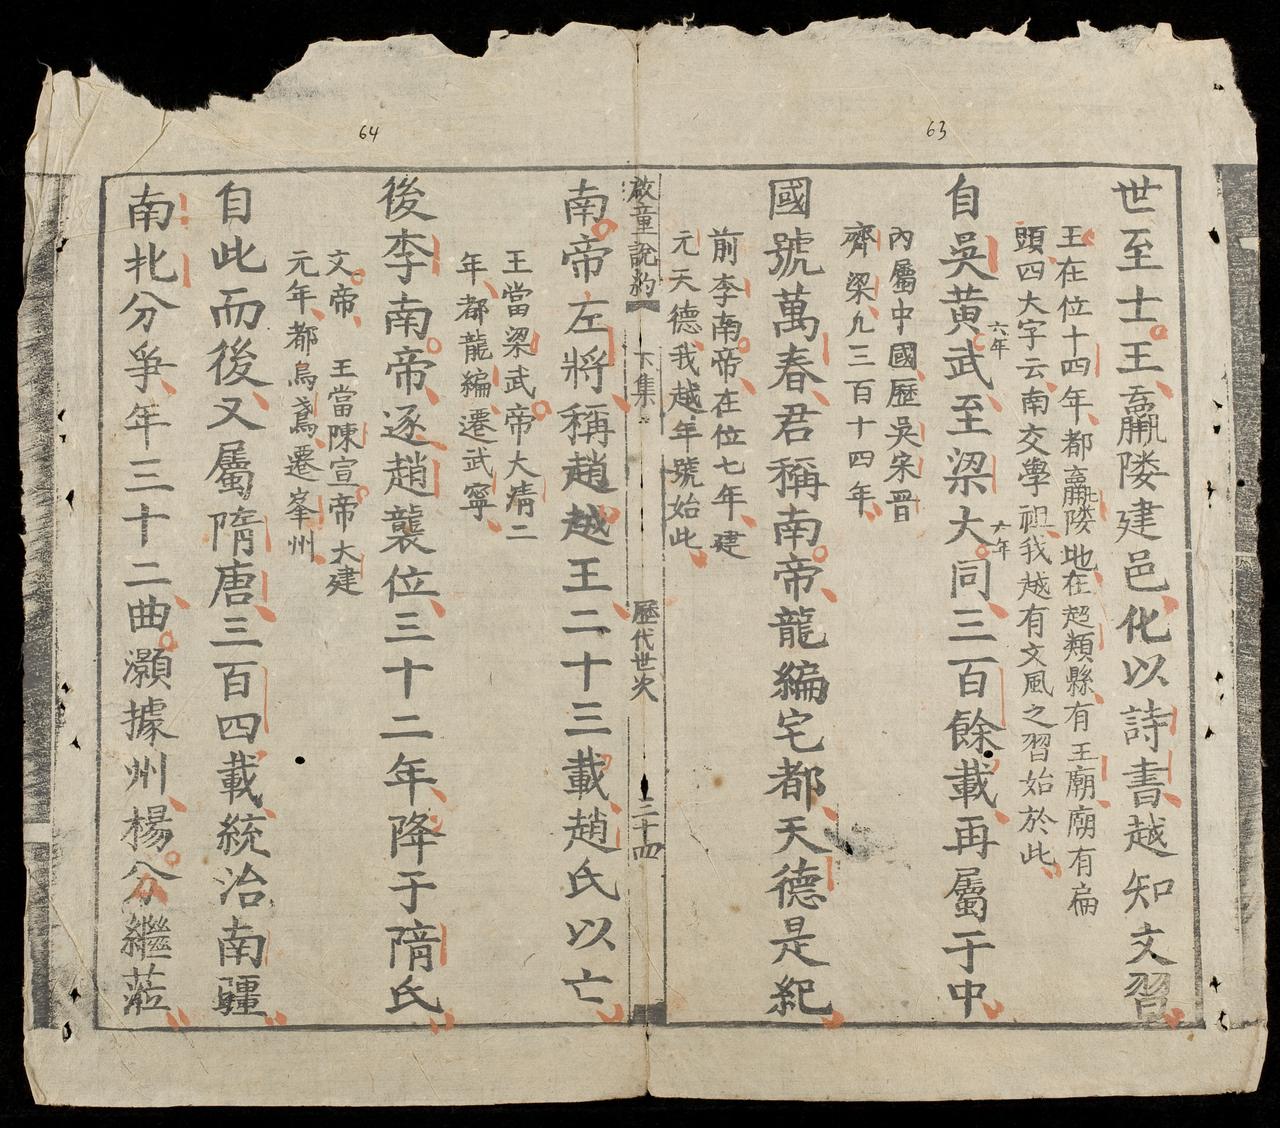 63
世至士王羸𨻻建邑化以詩書越知文習
王在位十四年都羸𨻻地在超類縣有王廟廟有扁
頭四大字云南交學祖我越有文風之習始於此
自吳黃武六年至梁大同六年三百餘載再屬于中
內屬中國歷吳宋晋
齊梁凡三百十四年
國號萬春君稱南帝龍編宅都天德是紀
前李南帝在位七年建
元天德我越年號始此
啟童說約 下集 歷代世次 三十四
64
南帝左將稱趙越王二十三載趙氏以亡
王當梁武帝大清二
年都龍編遷武寧
後李南帝逐趙襲位三十二年降于隋氏
文帝 王當陳宣帝大建
元年都烏鳶遷峯州
自此而後又屬隋唐三百四載統治南疆
南北分爭年三十二曲灝據州楊公繼蒞